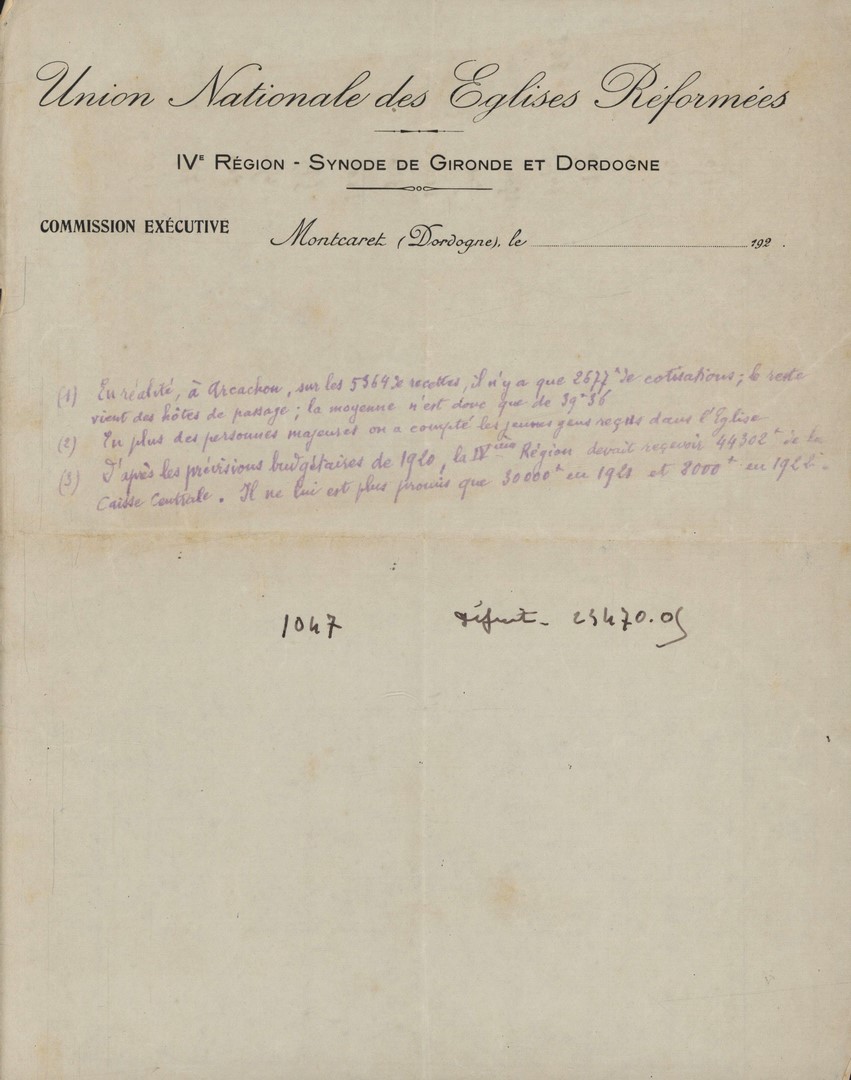 Union Nationale des Eglises Réformées
IVᴱ RÉGION - SYNODE DE GIRONDE ET DORDOGNE
COMMISSION EXÉCUTIVE
Montcaret (Dordogne), le 192 .
(1) En réalité, à Arcachon, sur les 5364 de recettes, il n'y a que 2677ᶠ de cotisations ; le reste
vient des hôtes de passage ; la moyenne n'est donc que de 39ᶠ36
(2) En plus des personnes majeures on a compté les jeunes gens reçus dans l'Eglise
(3) D'après les prévisions budgétaires de 1920, la IVième Région devait reçevoir 44302ᶠ de la
Caisse Centrale. Il ne lui est plus promis que 30000ᶠ en 1921 et 8000ᶠ en 1922.
1047 déficit - 23470.05